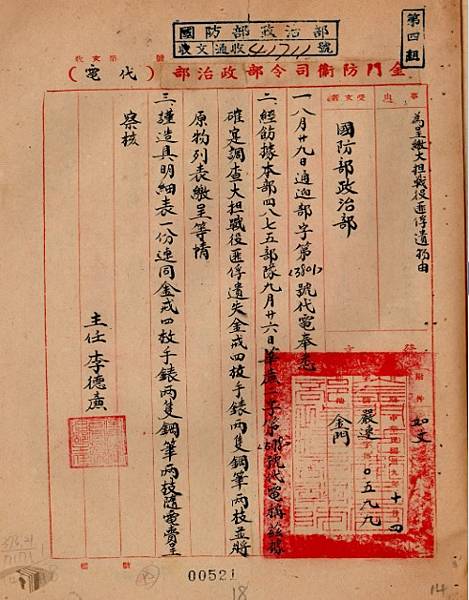 國防部政治部
收文通收41711號
第四組
金門防衛司令部政治部(代電)
事由
為呈繳大担戰役匪俘遺物由
受文者
國防部政治部
附件
如文
嚴建
0599
金門
十四
一、八月廿九日通迎部字第(3801)號代電奉悉
二、經飭據本部四八七五部隊九月廿六日
號代電稱茲將
確寔調查大担戰役匪俘遺失金戒四枚手錶兩隻鋼筆兩枝並將
原物列表繳呈等情
三、謹造具明細表一份連同金戒四枚手錶兩隻鋼筆兩枝隨電賫呈
察核
主任 李德廣
00521
18
14